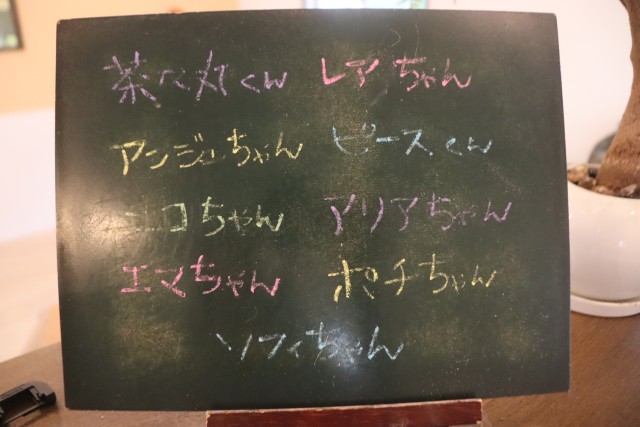 茶々丸くん レアちゃん
アンジュちゃん ピースくん
ココちゃん アリアちゃん
エマちゃん ポチちゃん
ソフィちゃん